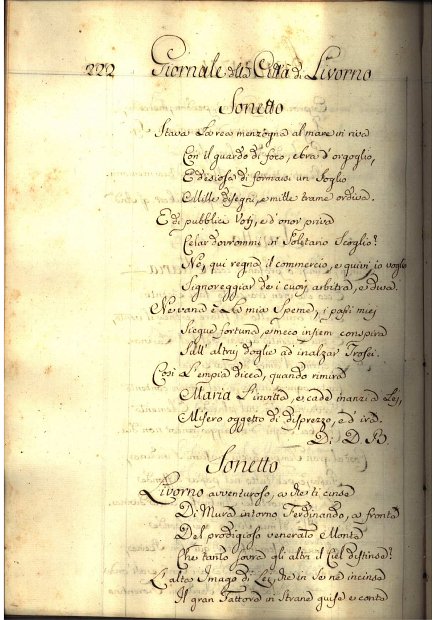 222 Giornale della Città di Livorno
Sonetto
Stava la rea menzogna al mare in riva
Con il guardo di foco, ebra d'orgoglio,
E desiosa di formarsi un Soglio
Mille disegni, e mille trame ordiva.
E di pubblici Voti, e d'onor priva
Celar dovrommi in Solitario Scoglio?
Nò, qui regna il commercio, e quivi io voglio
Signoreggiar de i cuori arbitra, e diva.
Ne vana è la mia Speme, i passi miei
Siegue fortuna, e meco insiem conspira
Sull' altrui doglie ad inalzar Trofei.
Così l'empia dicea, quando rimira
Maria l'invitta, e cade inanzi a Lei,
Misero oggetto di disprezzo, e d'ira.
Di D.
Sonetto
Livorno avventuroso, a che ti cinse
Di Mura intorno Ferdinando, a fronte
Del prodigioso venerato Monte
Che tanto sovra gli altri il Ciel distinse?
L'alta Imago di Lei, che in Se ne incinse
Il gran Fattore in Strane guise e conte